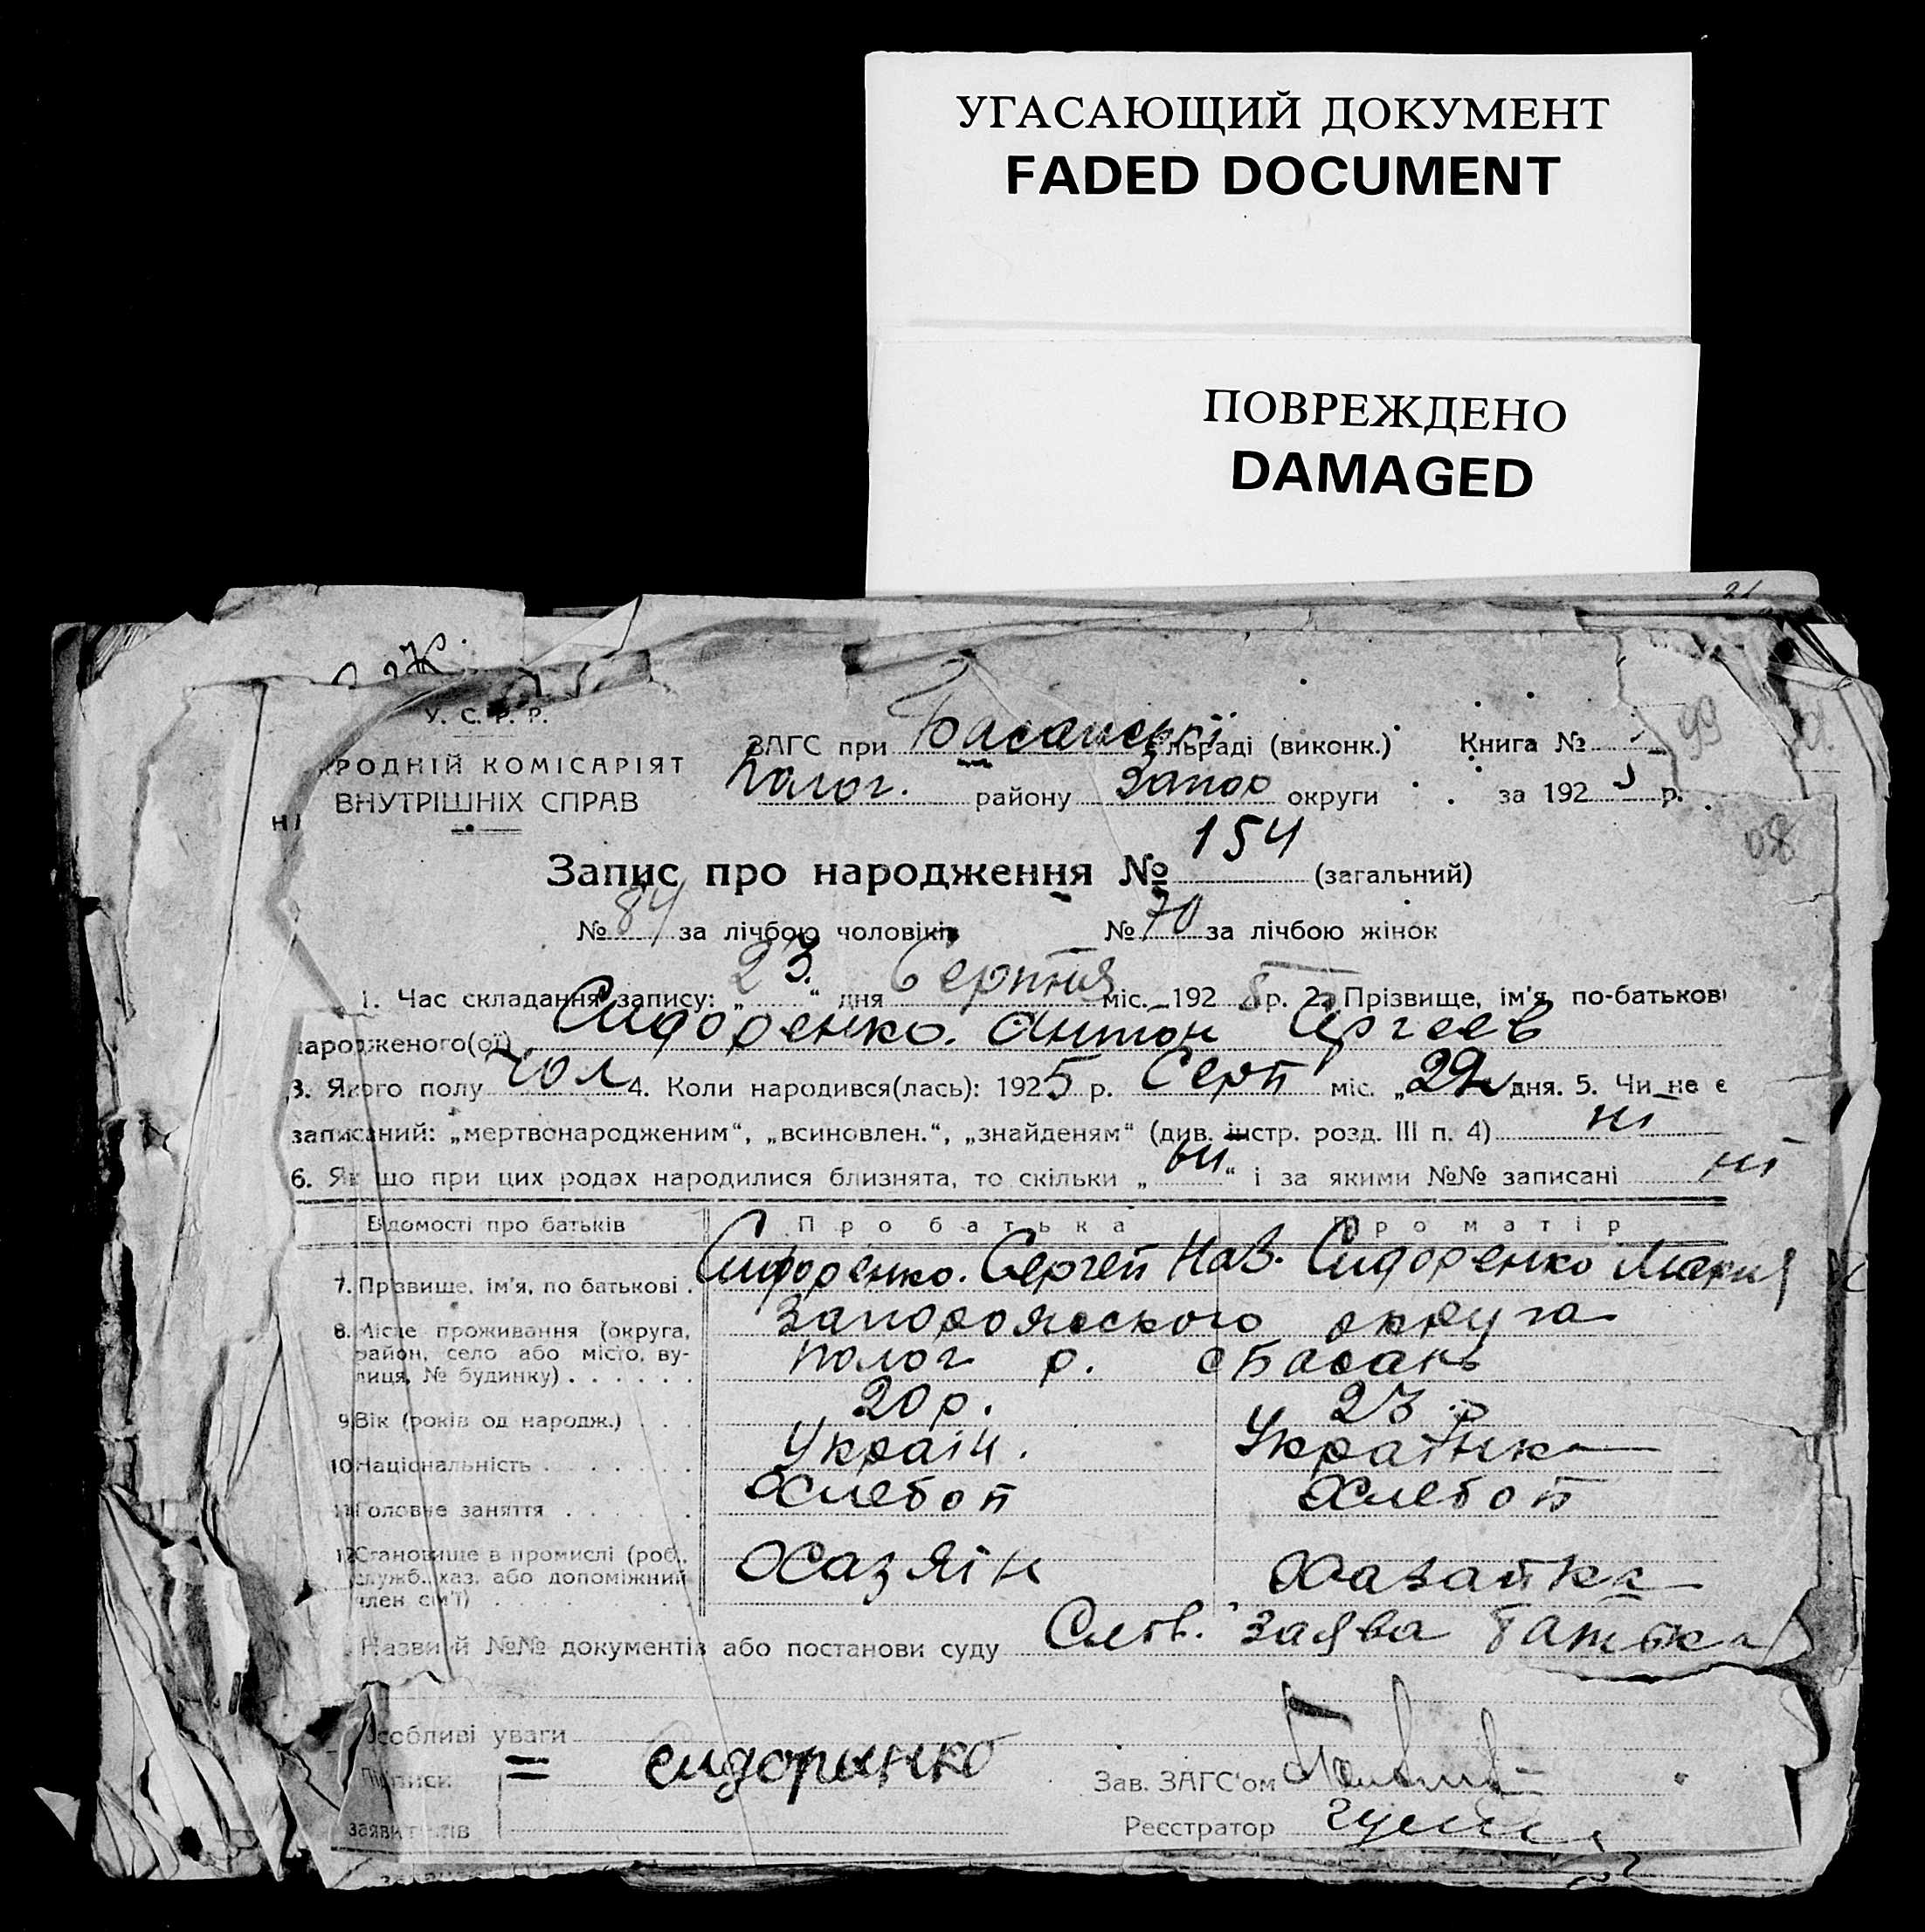 УГАСАЮЩИЙ ДОКУМЕНТ
FADED DOCUMENT
ПОВРЕЖДЕНО
DAMAGED
У. С. Р. Р.
РОДНІЙ КОМІСАРІЯТ
ВНУТРІШНІХ СПРАВ
ЗАГС при Басанські льраді (виконк.) Книга №
Полог. району Запор округи за 192 5 р.
99
08
Запис про народження № 154 (загальний)
№ 84 за лічбою чоловіків № 70 за лічбою жінок
1. Час складання запису: „23“ дня Серпня міс. 192 5 р. 2. Прізвище, ім'я, по-батькові
народженого(ої) Сидоренко. Антон Сергеев
3. Якого полу Чол 4. Коли народився(лась): 1925 р. Серп міс. „ дня. 5. Чи не є
записаний: „мертвонародженим“, „всиновлен.“, „знайденям“ (див. інстр. розд. III п. 4) ні
6. Якщо при цих родах народилися близнята, то скільки „ “ і за якими №№ записані ні
Відомості про батьків Про батька Про матір
7. Прізвище, ім'я, по батькові. Сидоренко. Сергей Сидоренко Мария
8. Місце проживання (округа, Запорожского округа
район, село або місто, ву- Полог р. с Басань
лиця, № будинку)
9 Вік (років од народж.) 20 р. 23 р
10 Національність Украін. Украінка
11 Головне заняття Хлебоп Хлебоп
12 Становище в промислі (роб., Хазяін Хазайка
служб., хаз. або допоміжний
член сім'ї)
Назви й №№ документів або постанови суду Слов. заява батька
Особливі уваги
Підписи = сидоринко Зав. ЗАГС'ом
заявителів Реєстратор